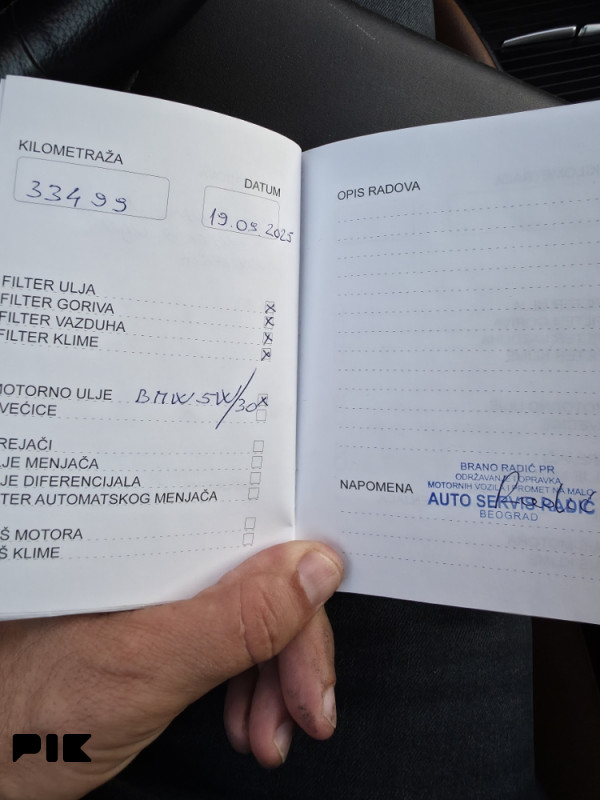 KILOMETRAŽA
33499
DATUM
19.09.2025
FILTER ULJA
FILTER GORIVA
FILTER VAZDUHA
FILTER KLIME
MOTORNO ULJE BMW 5W/30
VEĆICE
REJAČI
JE MENJAČA
JE DIFERENCIJALA
TER AUTOMATSKOG MENJAČA
Š MOTORA
Š KLIME
OPIS RADOVA
NAPOMENA
BRANO RADIĆ PR
ODRŽAVANJE I OPRAVKA
MOTORNIH VOZILA I PROMET NA MALO
AUTO SERVIS RADIĆ
BEOGRAD
PIK